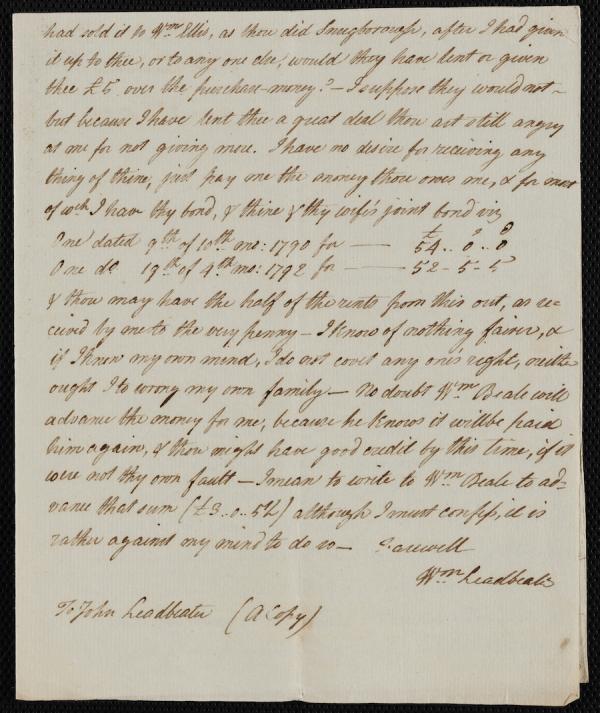 had sold it to Wm Ellis, as thou did Smugborough, after I had given
it up to thee, or to any one else, would they have lent or given
thee £5 over the purchase-money? – I suppose they would not –
but because I have lent thee a great deal thou art still angry
at me for not giving more. I have no desire for receiving any
thing of thine, just pay me the money thou owes me, & for most
of wch I have thy bond, & thine & thy wife's joint bond viz
One dated 9th of 10th mo: 1790 for —— £54 .. 0 .. 0
One do 19th of 4th mo: 1792 for —— 52 - 5 - 5
& thou may have the half of the rents from this out, as re=
ceived by me to the very penny – I know of nothing fairer, &
if I know my own mind, I do not covet any one's right, neither
ought I to wrong my own family – No doubt Wm Beale will
advance the money for me, because he knows it will be paid
him again, & thou might have good credit by this time, if it
were not thy own fault – I mean to write to Wm Beale to ad=
vance that sum (£3 .. 0 .. 5½) although I must confess, it is
rather against my mind to do so — Farewell
Wm Leadbeater
To John Leadbeater (A Copy)